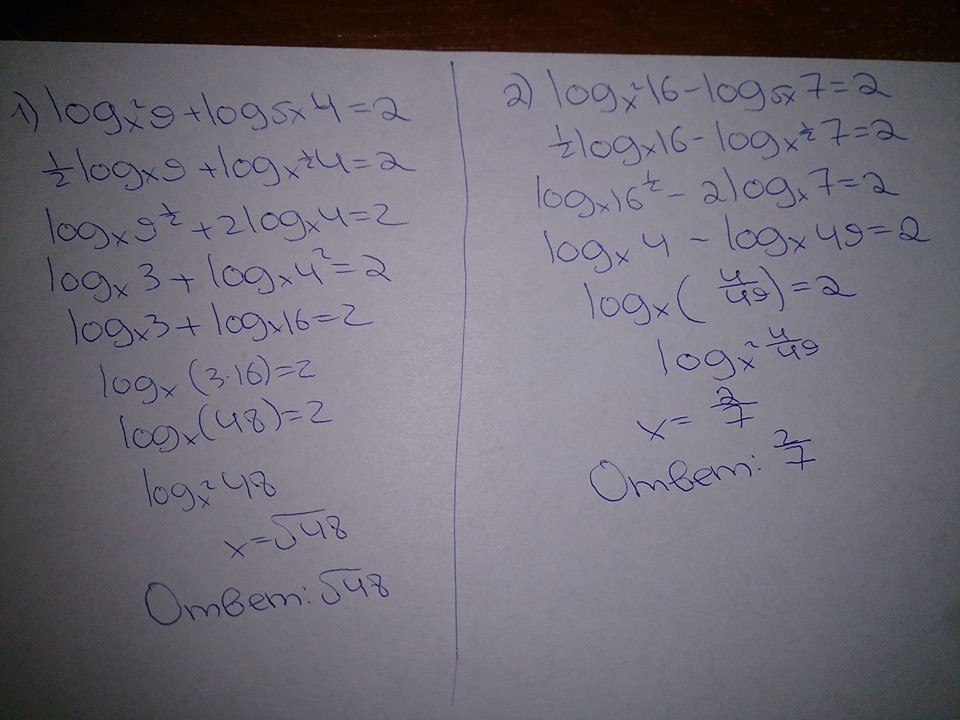 1) log_{x²}9 + log_{√x}4 = 2
½log_x9 + log_{x^½}4 = 2
log_x9^½ + 2log_x4 = 2
log_x3 + log_x4² = 2
log_x3 + log_x16 = 2
log_x(3·16) = 2
log_x(48) = 2
log_{x²}48
x = √48
Ответ: √48
2) log_{x²}16 - log_{√x}7 = 2
½log_x16 - log_{x^½}7 = 2
log_x16^½ - 2log_x7 = 2
log_x4 - log_x49 = 2
log_x(4/49) = 2
log_{x²}4/49
x = 2/7
Ответ: 2/7